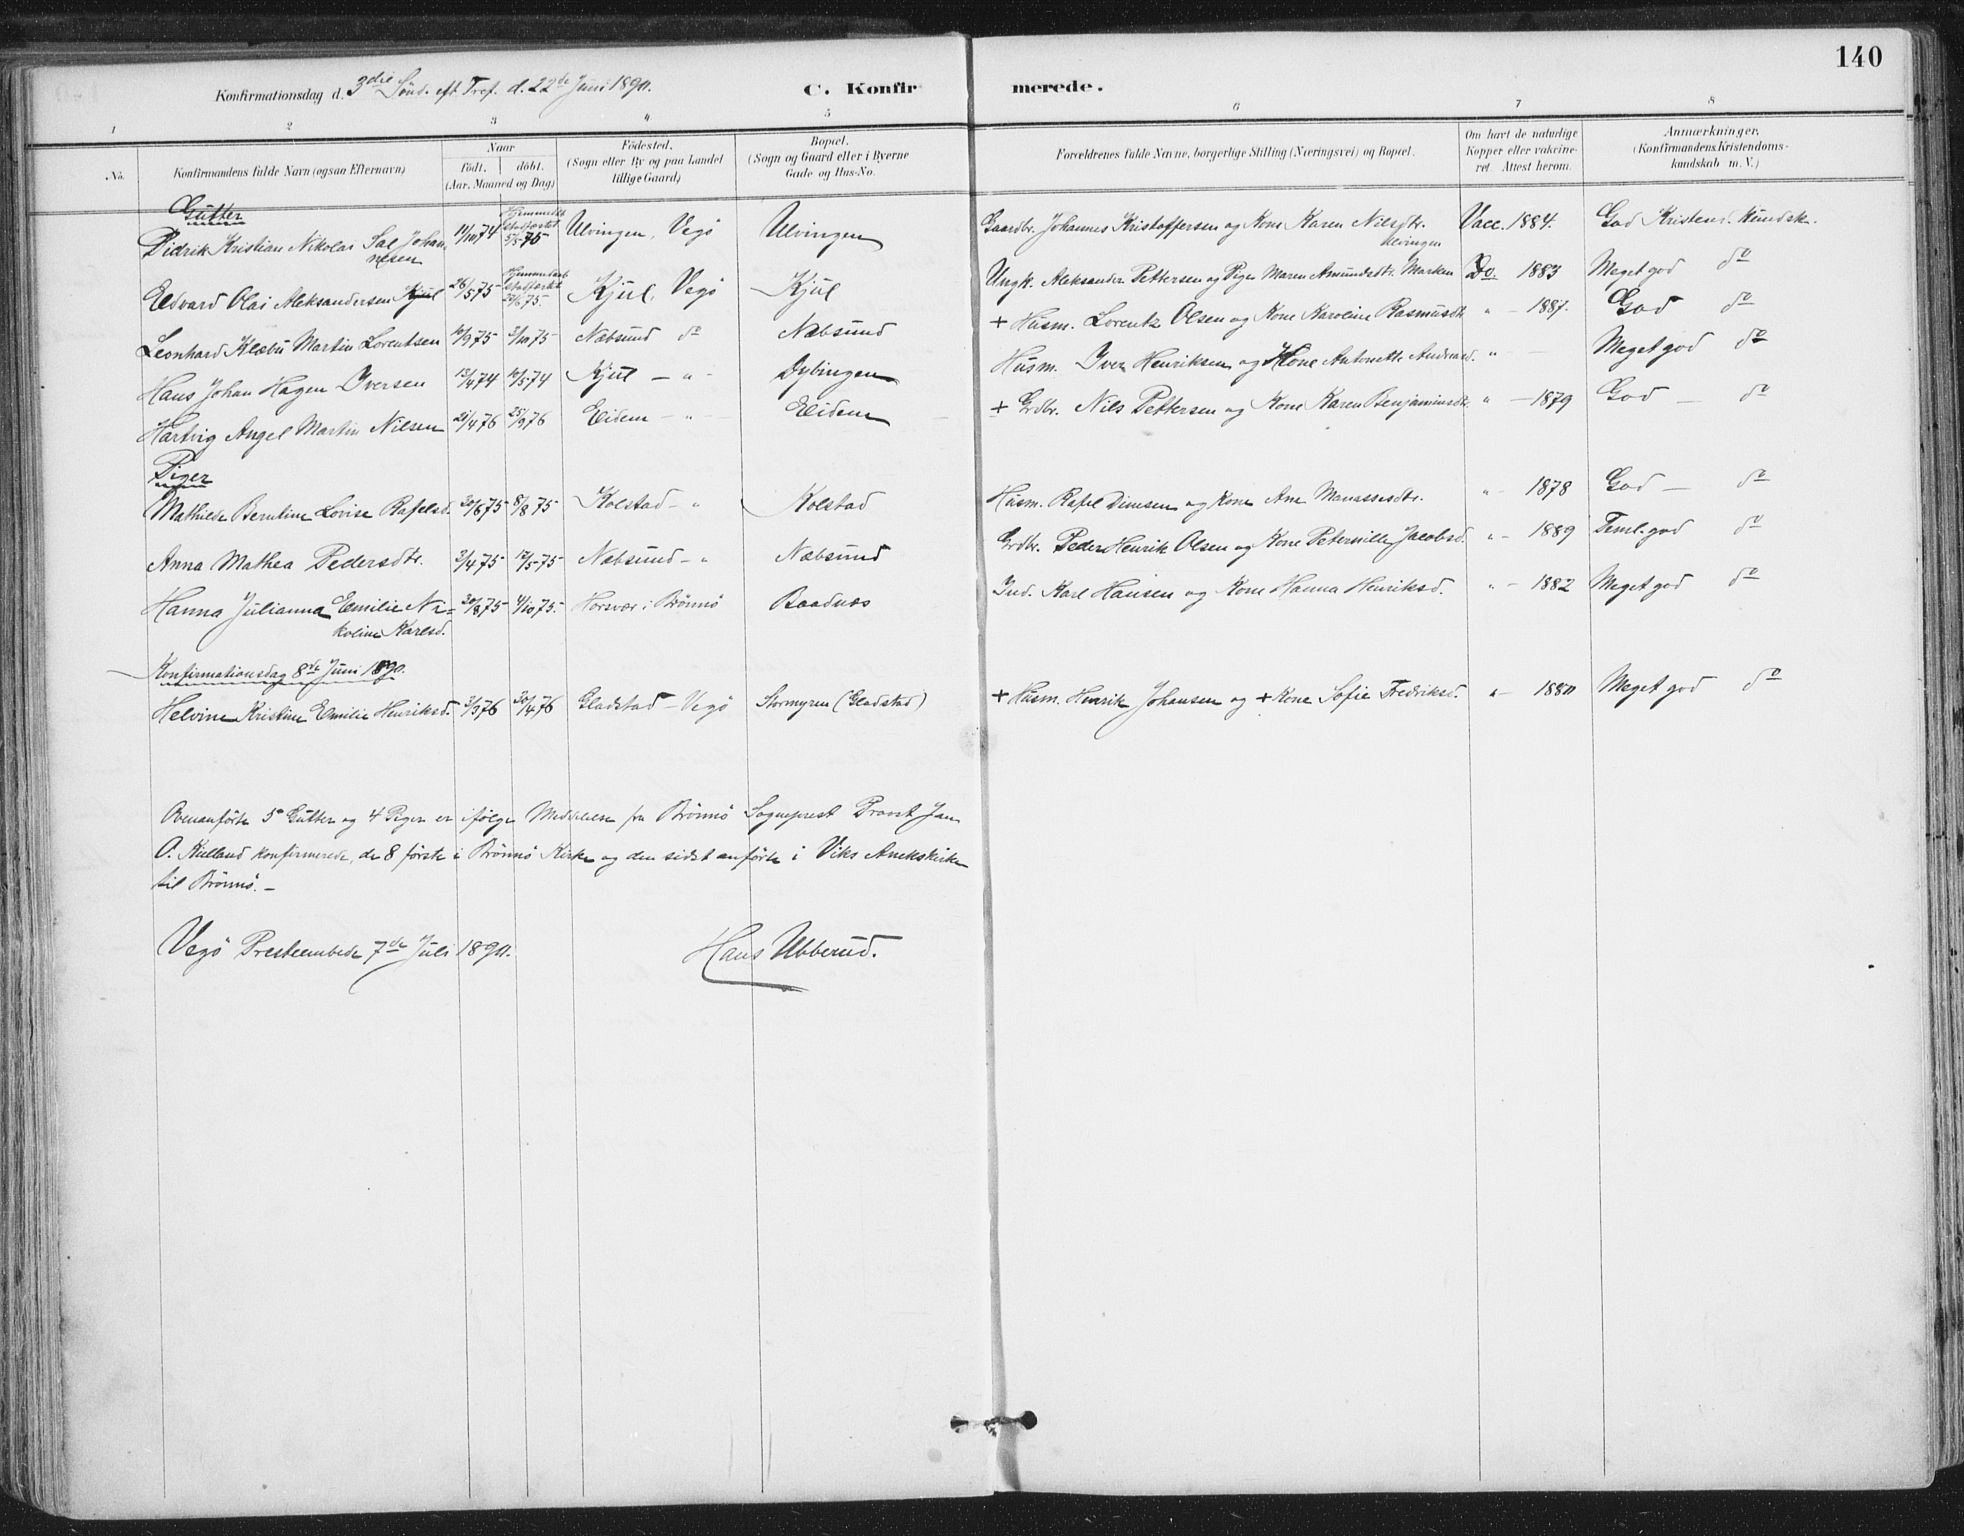 140
Konfirmationsdag d. 3die Sönd. eft. Tref. d. 22de Juni 1890.
C. Konfirmerede.
1 2 3 4 5 6 7 8
No. Konfirmandens fulde Navn (ogsaa Efternavn) Naar født. døbt. (Aar, Maaned og Dag) Fødested. (Sogn eller By og paa Landet tillige Gaard) Bopæl. (Sogn og Gaard eller i Byerne Gade og Hus-No. Forældrenes fulde Navne, borgerlige Stilling (Næringsvei) og Bopæl. Om havt de naturlige Kopper eller vakcineret. Attest herom. Anmærkninger, (Konfirmandens Kristendomskundskab m. V.)
Gutter
Didrik Kristian Nikolai Sal. Johannesen 11/10 74 Hjemmedøbt stadfæstet 5/5 75 Ulvingen, Vegö Ulvingen Gaardbr. Johannes Kristoffersen og Kone Karen Nilsdtr. Ulvingen Vacc. 1884. God Kristend. Kundsk.
Edvard Olai Aleksandersen Kjul 26/5 75 Hjemmedøbt stadfæstet 75 Kjul, Vegö Kjul Ungk. Aleksander Pettersen og Pige Maren Amundsdtr. Marken Do. 1883 Meget god do
Leonhard Klæbu Martin Lorentsen 10/9 75 3/10 75 Næbsund do Næbsund + Husm. Lorentz Olsen og Kone Karoline Rasmusdtr. " - 1887. God do
Hans Johan Hagen Iversen 13/4 74 10/5 74 Kjul - " - Dybingen Husm. Iver Henriksen og Kone Antonette Andreasd. " - Meget god do
Hartvig Angel Martin Nilsen 21/4 76 25/9 76 Eidem - " - Eidem + Grdbr. Nils Pettersen og Kone Karen Benjaminsdtr. " - 1879 God - do
Piger
Mathilde Berntine Lovise Rafelsd. 20/6 75 8/8 75 Kolstad - " Kolstad Husm. Rafel Dinesen og Kone Ane Manassesdtr. " - 1878 God - do
Anna Mathea Pedersdtr. 2/4 75 17/5 75 Næbsund - " Næbsund Grdbr. Peder Henrik Olsen og Kone Peternille Jacobsd. " - 1889 Teml. god do
Hanna Julianna Emilie Nikoline Karlsd. 20/8 75 4/10 75. Horsvær i Brönnö Baadnæs Ind. Karl Hansen og Kone Hanna Henriksd. " - 1882 Meget god do
Konfirmationsdag 8de Juni 1890.
Helvine Kristine Emilie Henriksd. 3/3 76 30/4 76 Gladstad - Vegö Stormyren (Gladstad) + Husm. Henrik Johansen og + Kone Sofie Fredriksd. " - 1880 Meget god do
Ovenanförte 5 Gutter og 4 Piger er ifölge Meddelelse fra Brönnö Sogneprest Provst Jan
O. Kielland konfirmerede, de 8 förste i Brönnö Kirke og den sidst anförte i Viks Anekskirke
til Brönnö. -
Vegö Presteembede 7de Juli 1890.
Hans Ubberud.